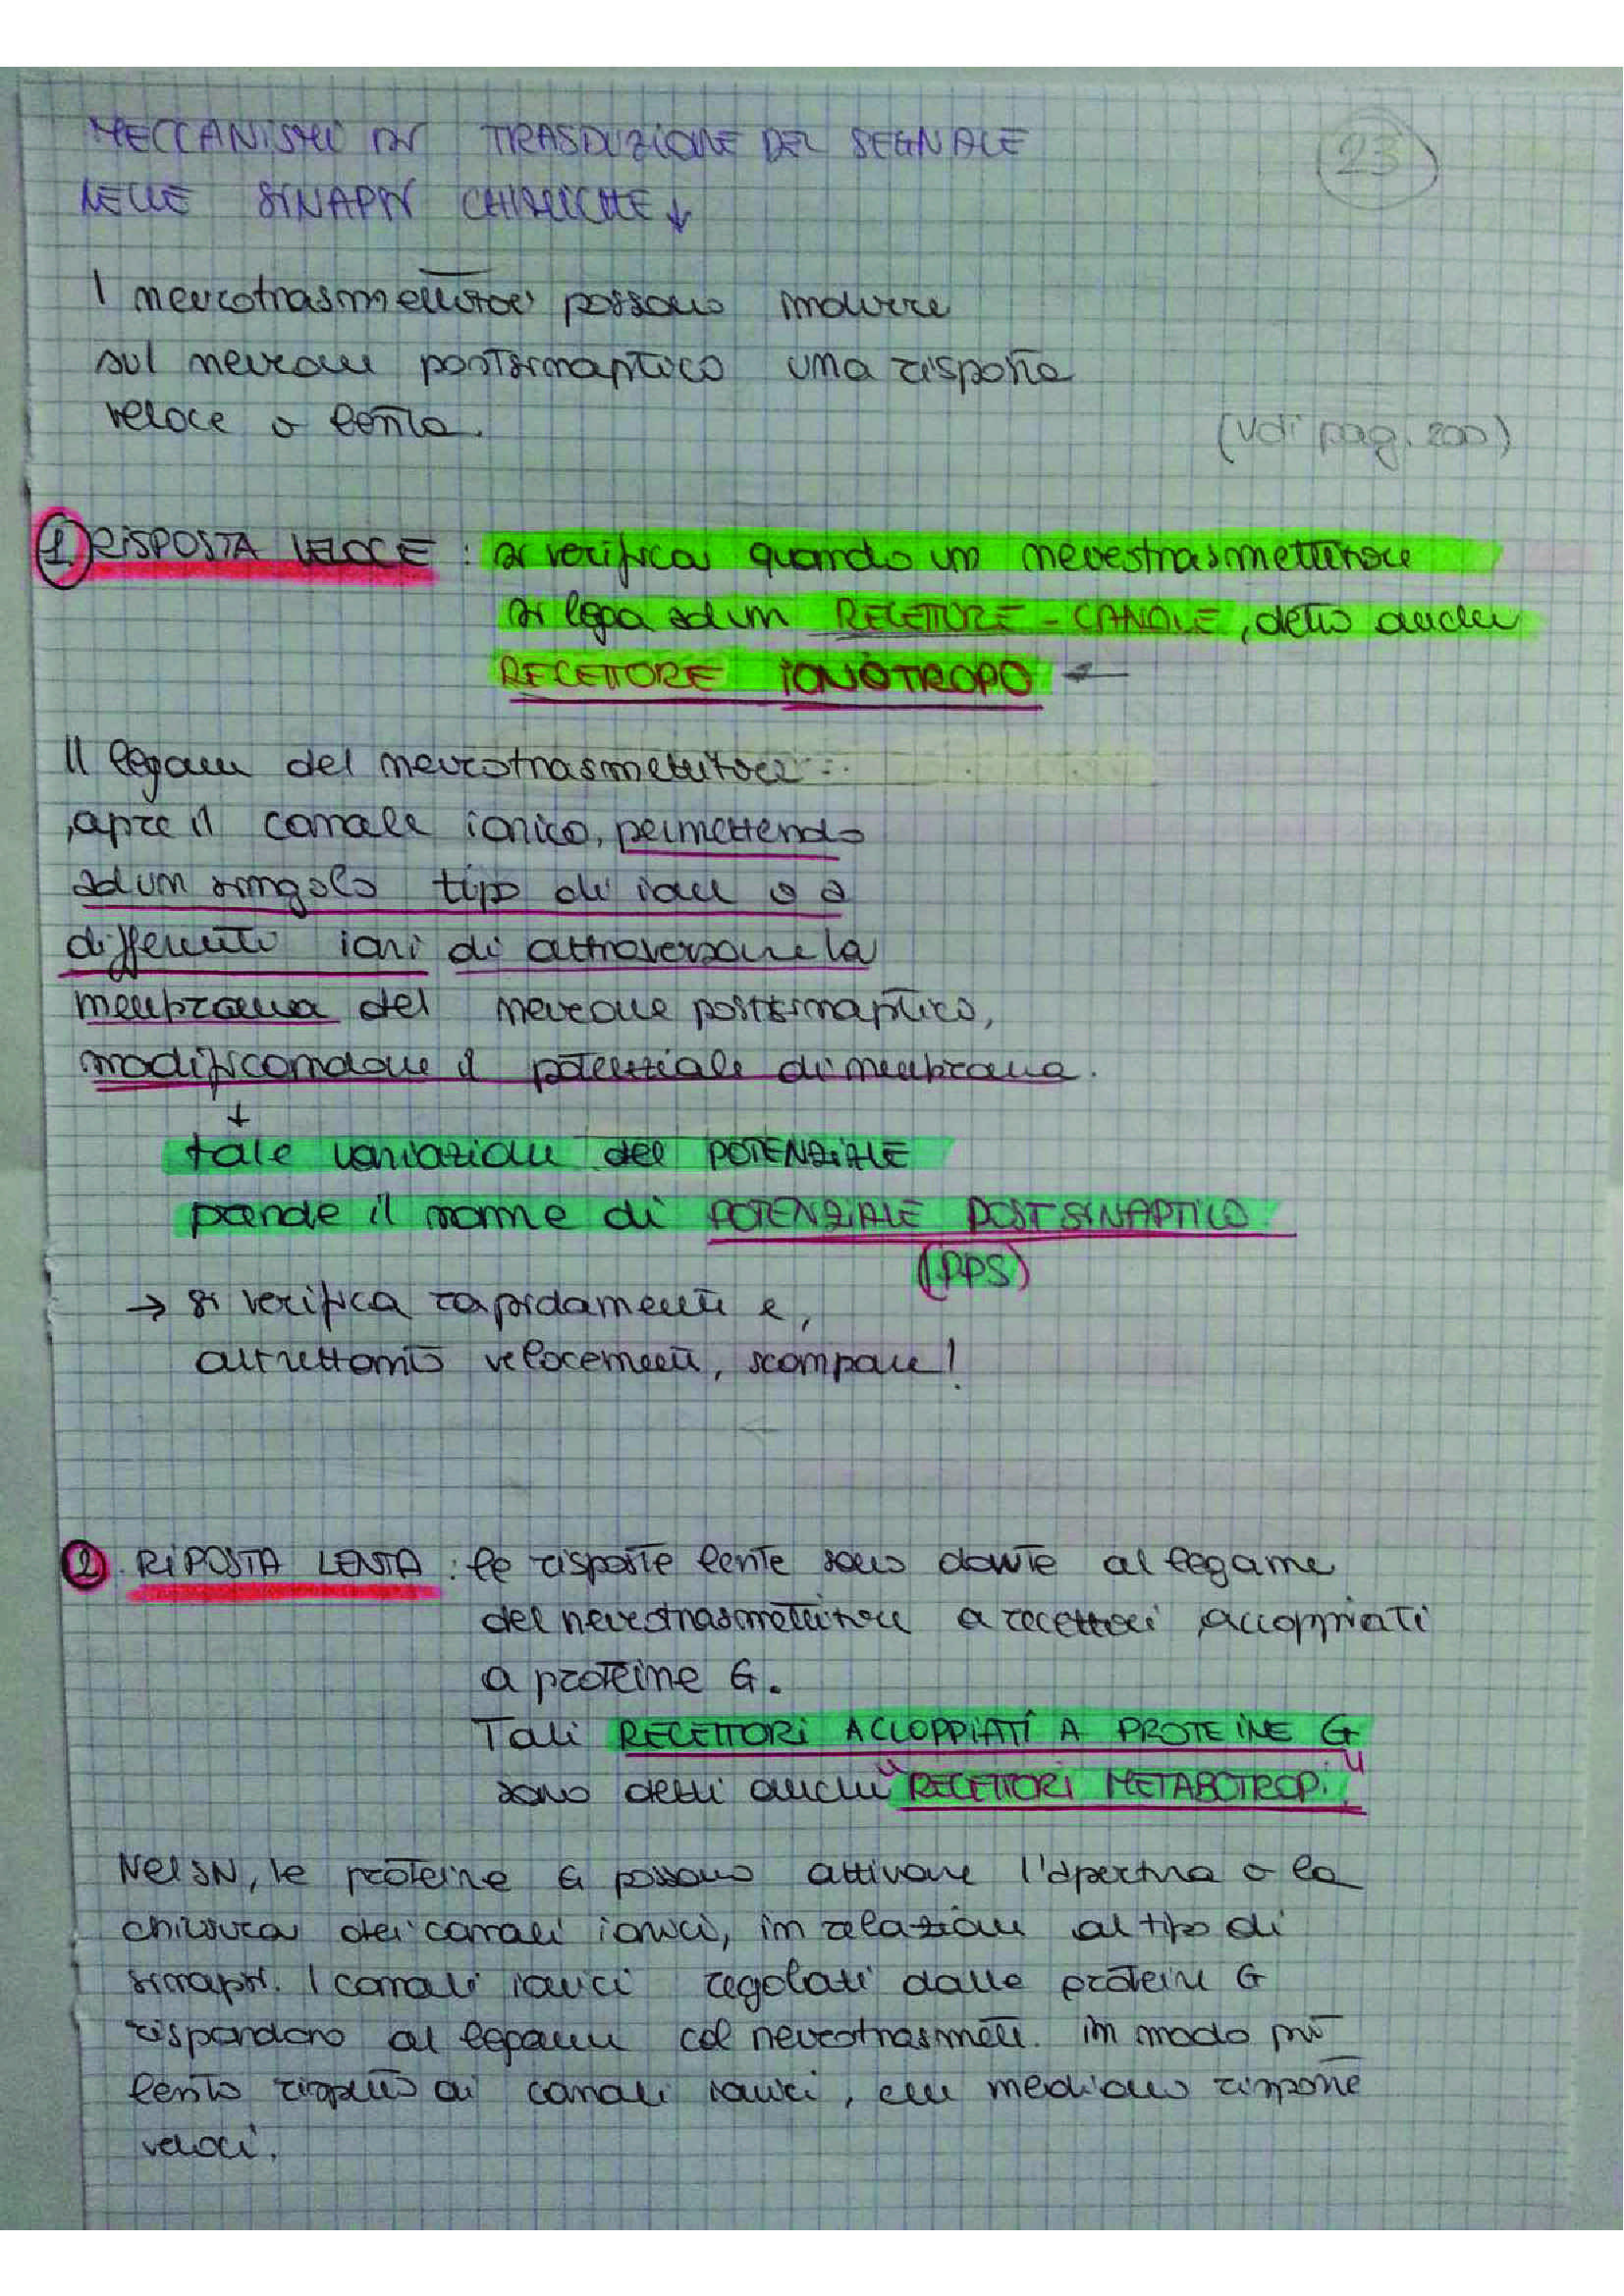 MECCANISMI DI TRASDUZIONE DEL SEGNALE
23
NELLE SINAPSI CHIMICHE ↓
I neurotrasmettitori possono indurre
sul neurone postsinaptico una risposta
veloce o lenta.
(vdi pag. 200)
1 RISPOSTA VELOCE : si verifica quando un neurotrasmettitore
si lega ad un RECETTORE - CANALE, detto anche
RECETTORE IONOTROPO ←
Il legame del neurotrasmettitore
, apre il canale ionico, permettendo
ad un singolo tipo di ione o a
differenti ioni di attraversare la
membrana del neurone postsinaptico,
modificandone il potenziale di membrana.
↓
tale variazione del POTENZIALE
prende il nome di POTENZIALE POSTSINAPTICO
(PPS)
→ si verifica rapidamente e,
altrettanto velocemente, scompare!
2 RIPOSTA LENTA : le risposte lente sono dovute al legame
del neurotrasmettitore a recettori accoppiati
a proteine G.
Tali RECETTORI ACCOPPIATI A PROTEINE G
sono detti anche "RECETTORI METABOTROPI"
Nel SN, le proteine G possono attivare l'apertura o la
chiusura dei canali ionici, in relazione al tipo di
sinapsi. I canali ionici regolati dalle proteine G
rispondono al legame col neurotrasmett. in modo più
lento rispetto ai canali ionici, che mediano risposte
veloci.